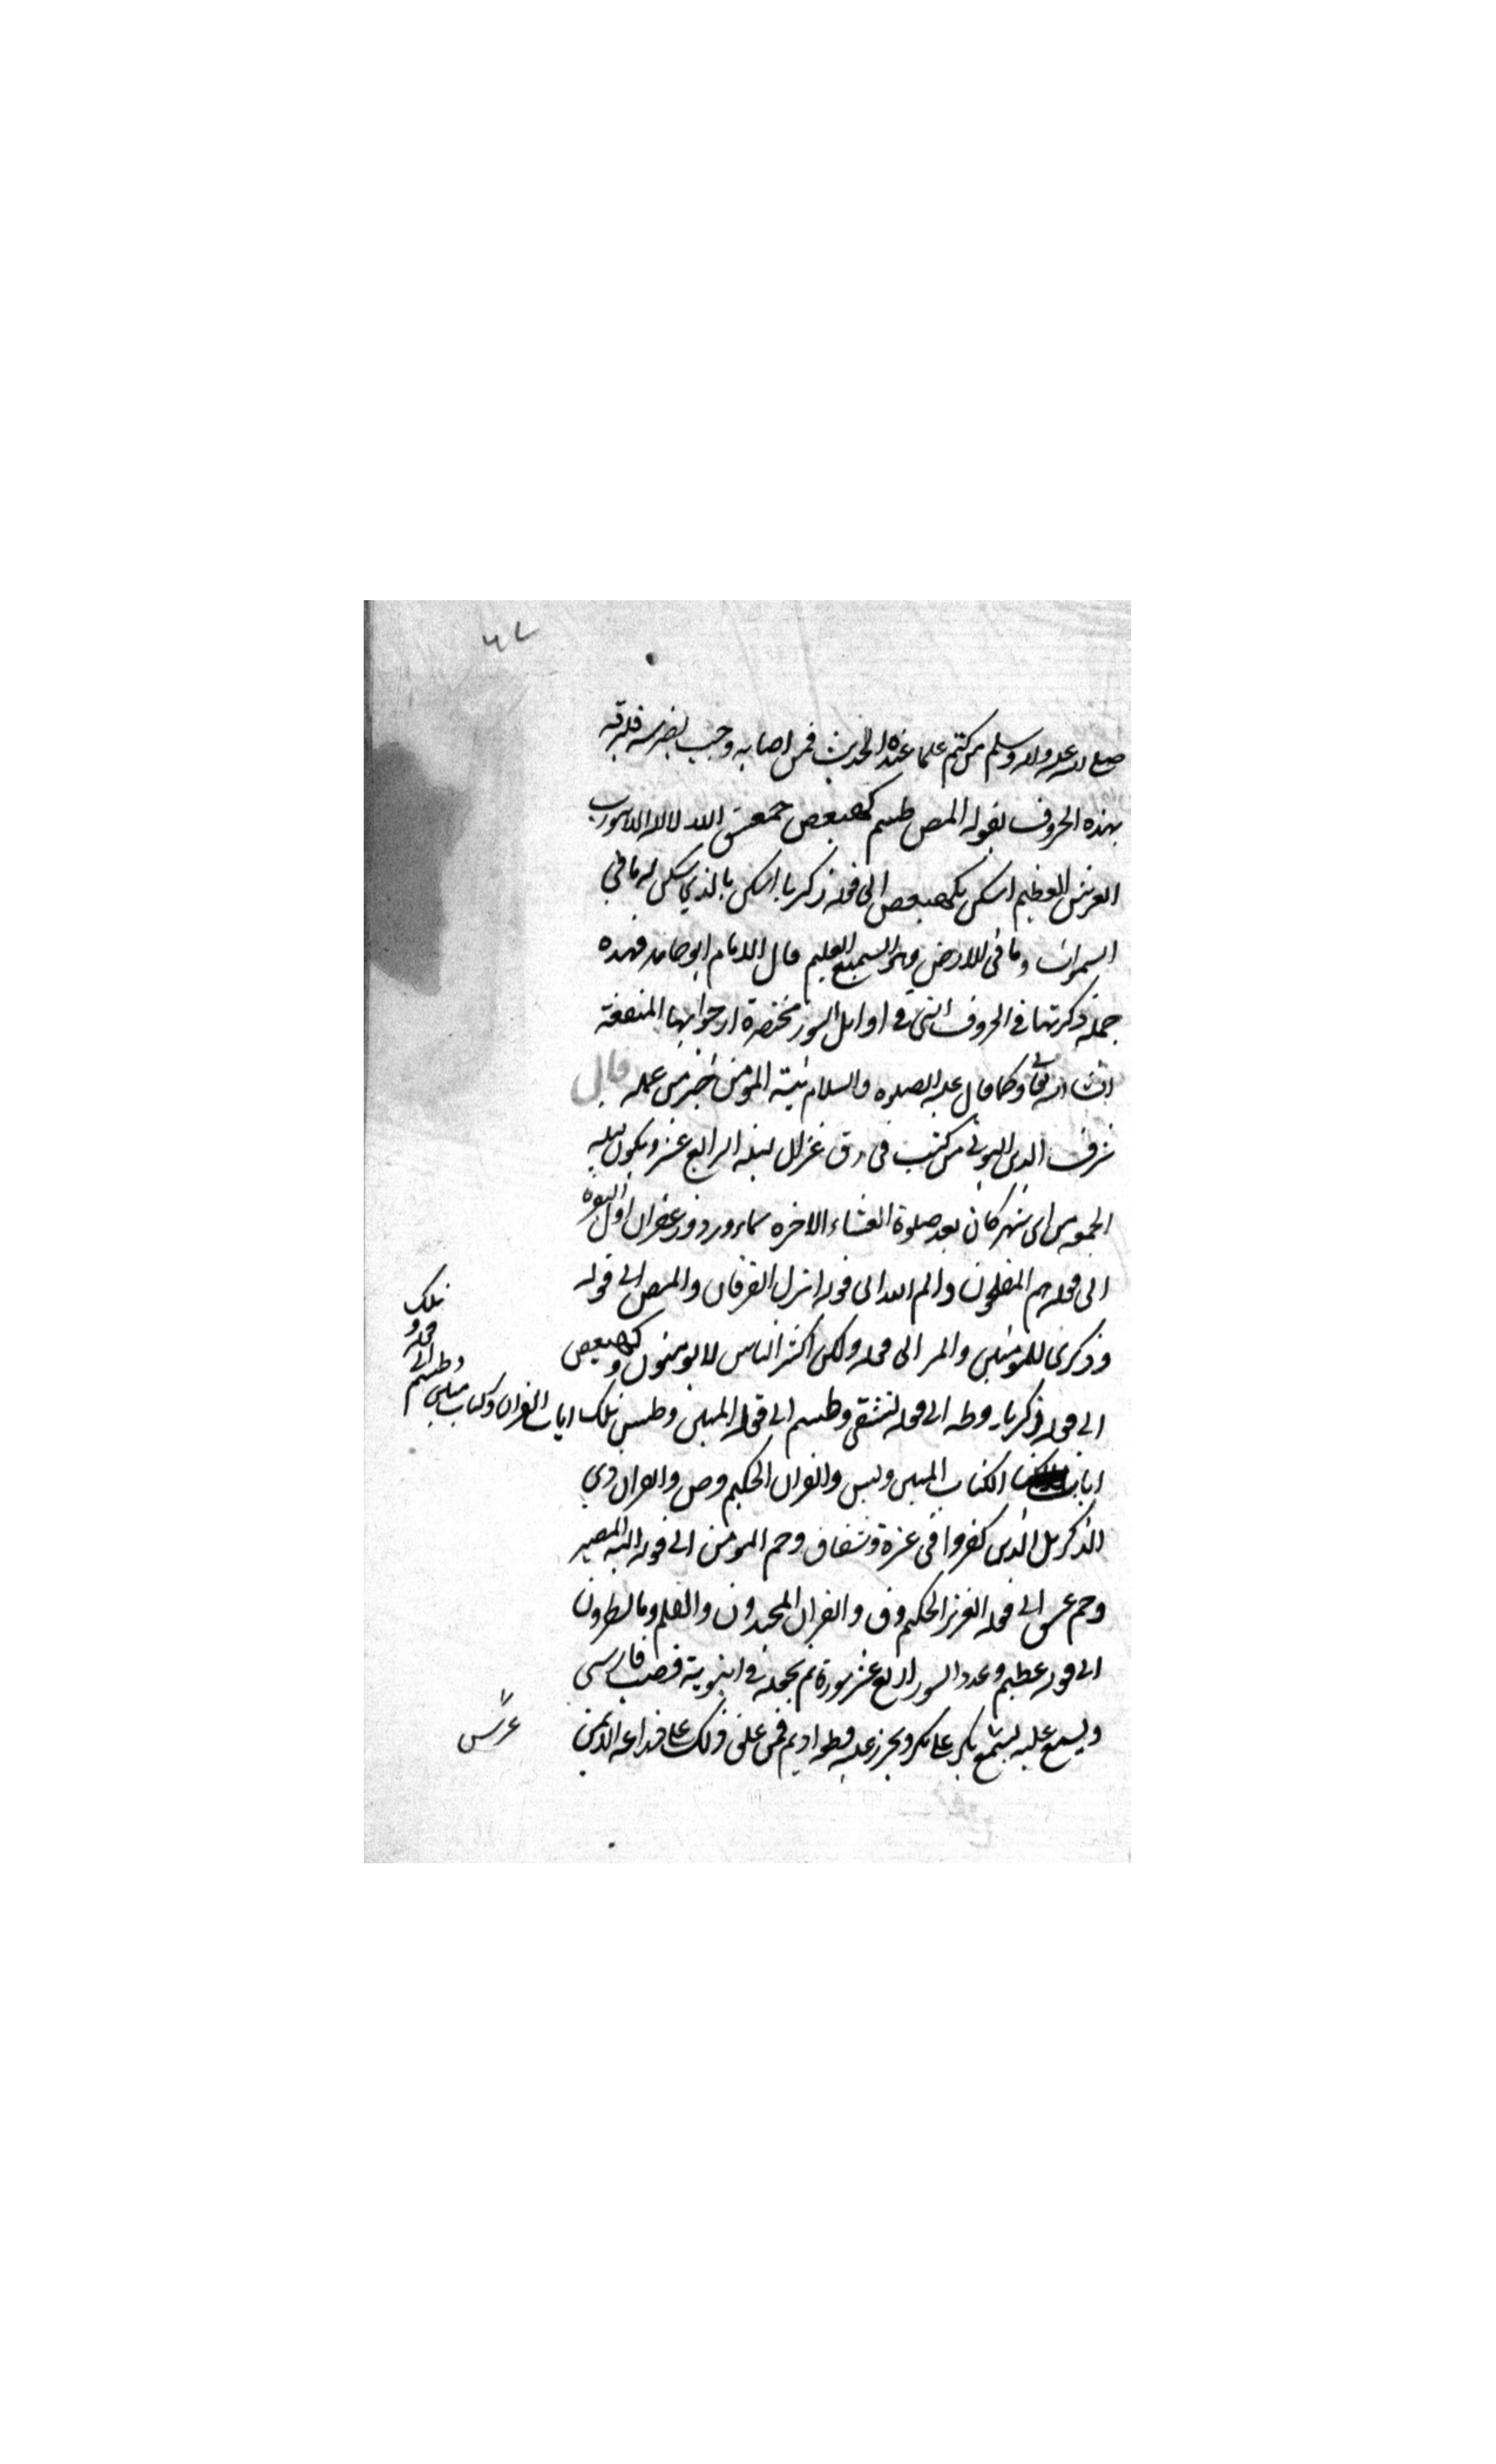 صلى الله عليه واله وسلم من كتم علما عنده الحديث فمن اصابه وجب بضرسه فليرقه
بهذه الحروف بقوله المص طسم كهيعص حمعسق الله لا اله الا هو رب
العرش العظيم اسكن بكهيعص الى قوله زكريا اسكن بالذي سكن له ما في
السموات وما في الارض وهو السميع العليم قال الامام ابو حامد فهذه
جملة ذكرتها في الحروف التي في اوايل السور مختصرة ارجوا بها المنفعة
انشا الله تعالى وكما قال عليه الصلوة والسلام نية المومن خير من عمله قال
شرف الدين البوني من كتب في رق غزال ليلة الرابع عشر ويكون ليلة
الجمعه من اى شهر كان بعد صلوة العشاء الاخره بماء ورد وزعفران اول البقرة
الى قوله هم المفلحون والم الله الى قوله انزل الفرقان والمص الى قوله
وذكرى للمومنين والمر الى قوله ولكن اكثر الناس لا يومنون وكهيعص
الى قوله زكريا وطه الى قوله لتشقى وطسم الى قوله المبين وطس تلك ايات القران وكتاب مبين
وطسم الى قوله تلك
ايات الكتاب المبين ويس والقران الحكيم وص والقران ذي
الذكر بل الذين كفروا في عزة وشقاق وحم المومن الى قوله اليه المصير
وحم عسق الى قوله العزيز الحكيم وق والقران المجيد ون والقلم وما يسطرون
الى قوله عظيم وعدد السور اربع عشر سورة ثم يجعله في انبوبة قصب فارسى
عليه بشمع بكر ويحرز عليه قطعة اديم فمن علق ذلك على ذراعه الايمن